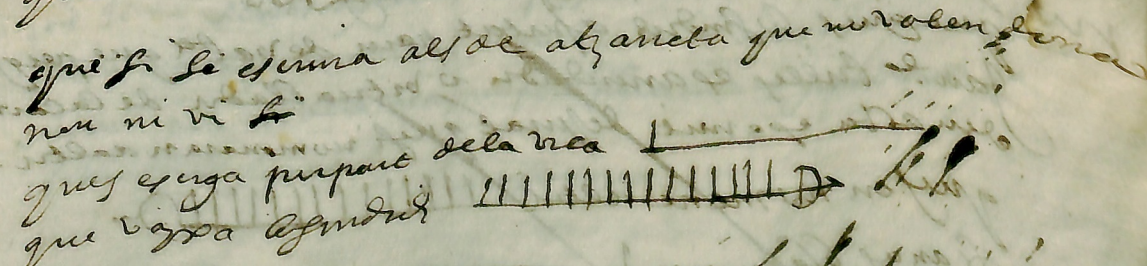 que si se escriura als de atzaneta que no volen dona
neu ni vi
ques escriga per part de la vila
que vaxa